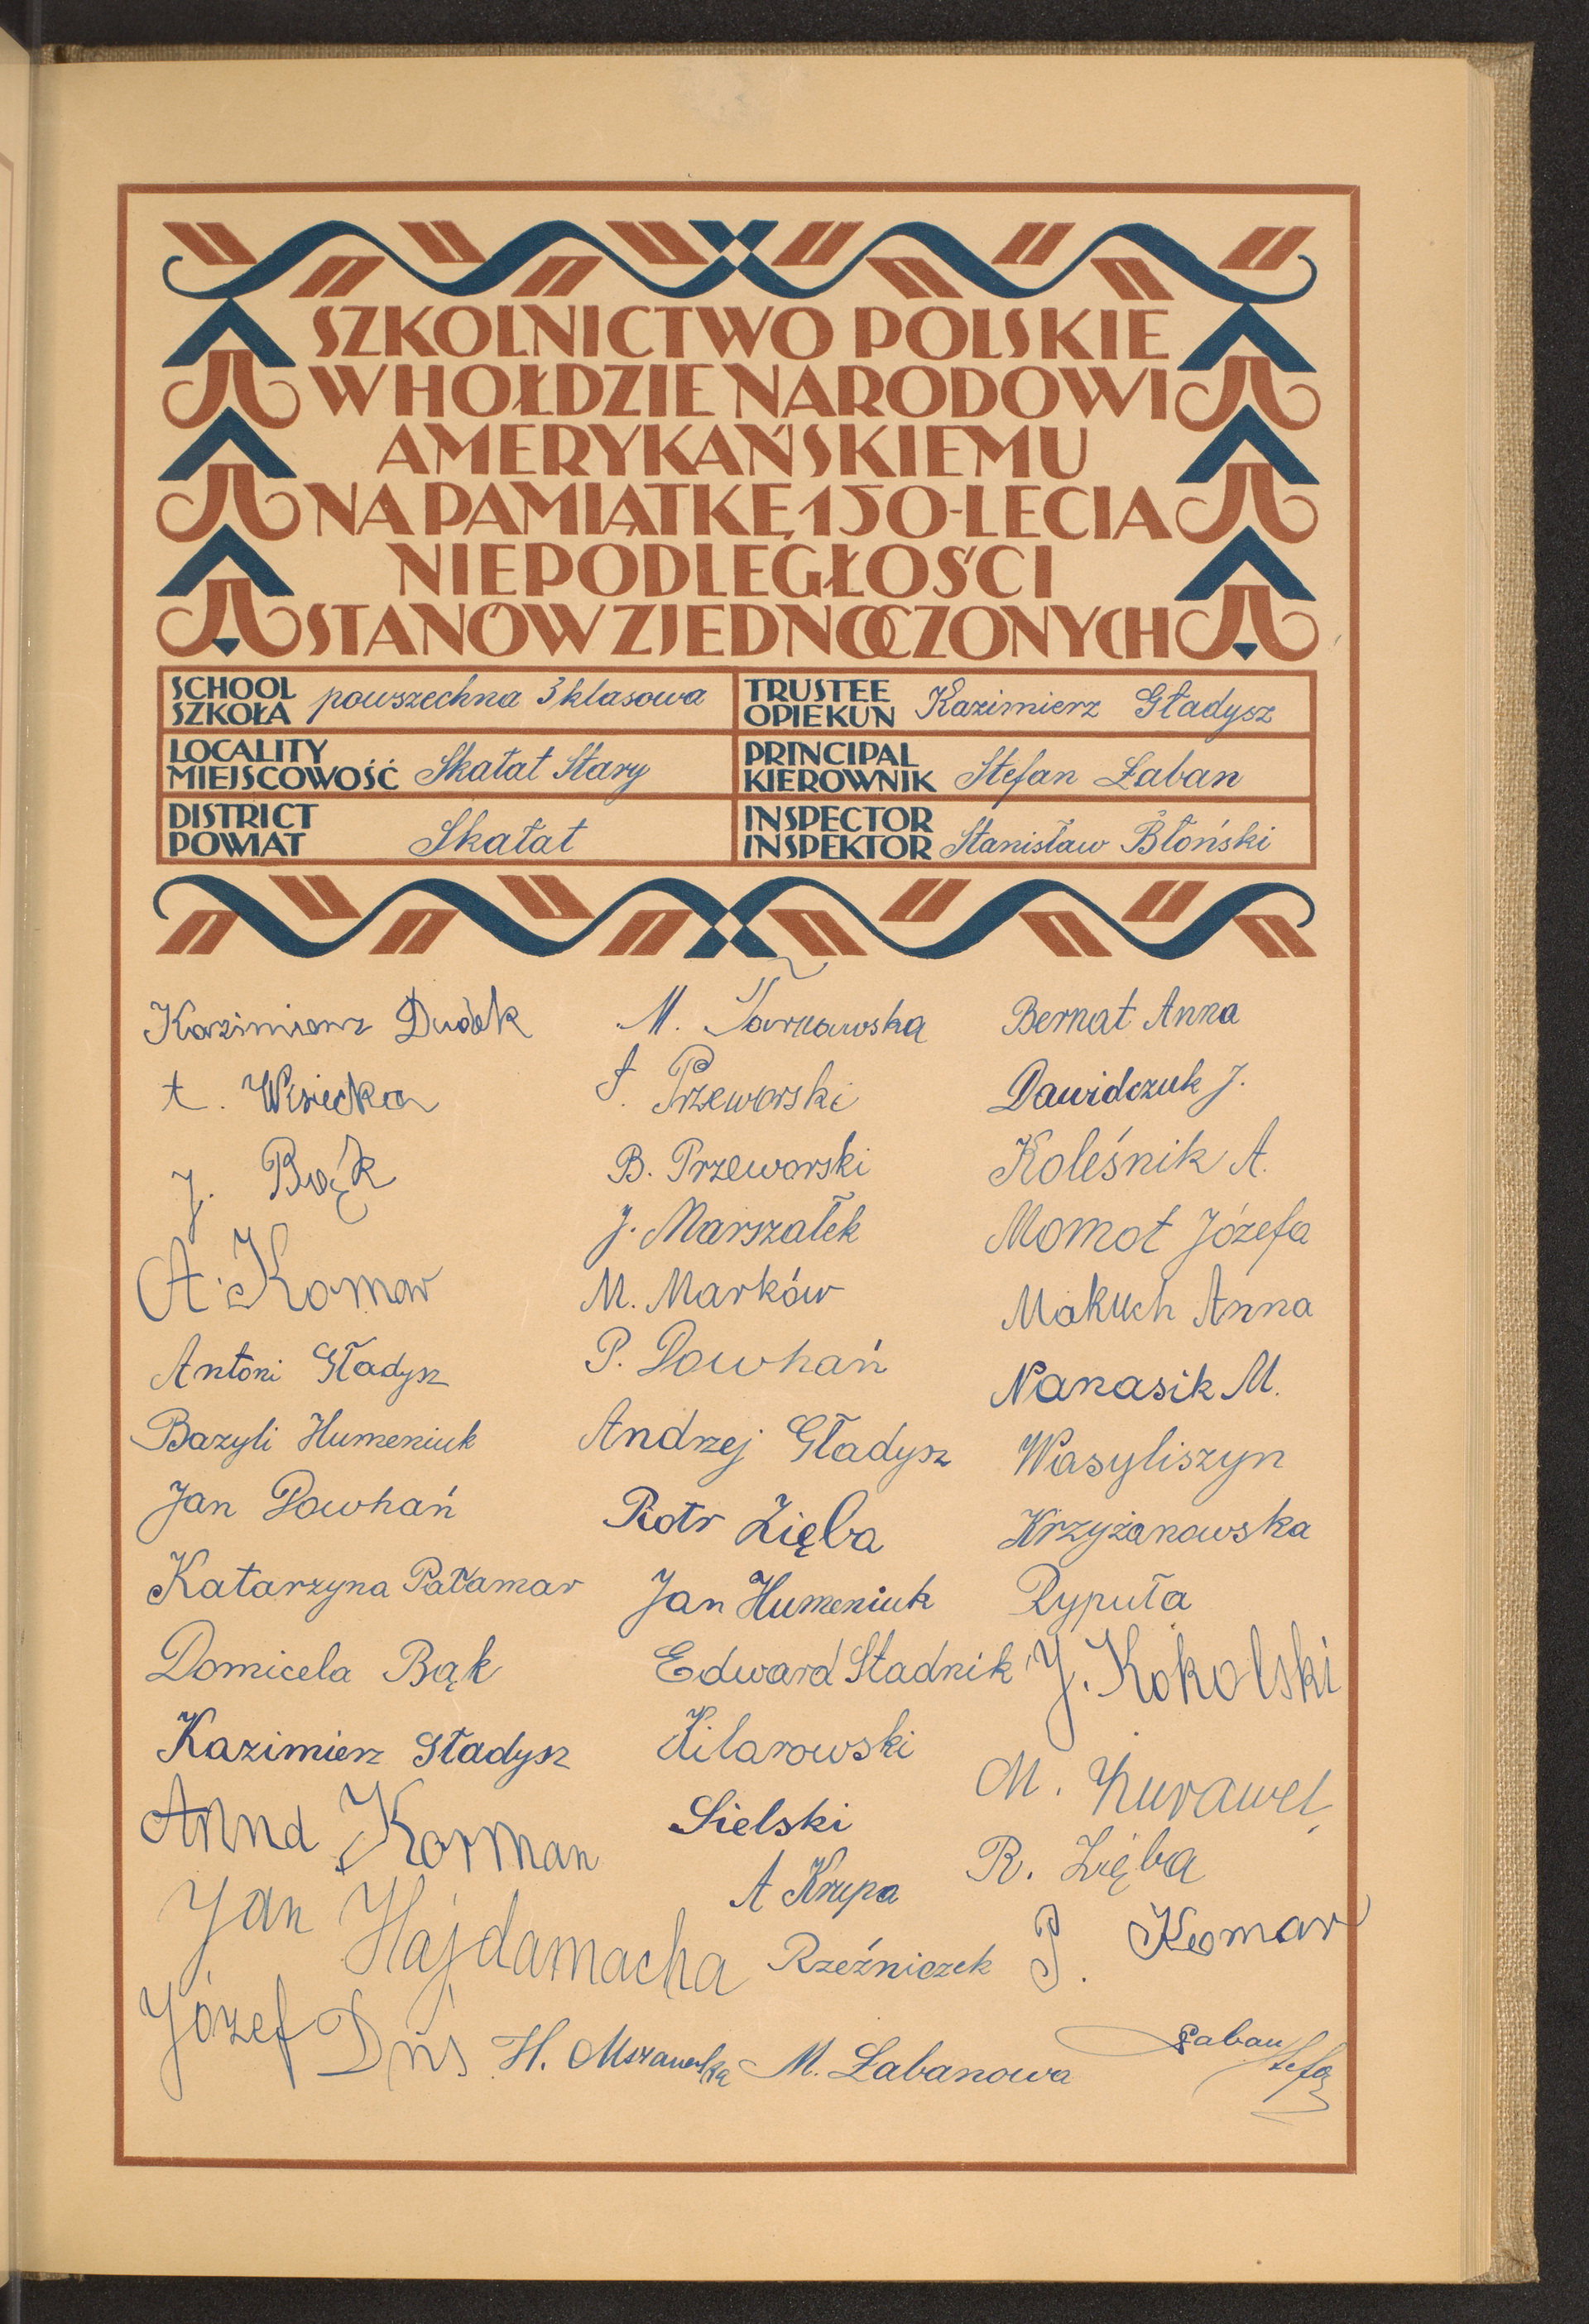 SZKOLNICTWO POLSKIE
W HOŁDZIE NARODOWI
AMERYKAŃSKIEMU
NA PAMIĄTKĘ 150-LECIA
NIEPODLEGŁOŚCI
STANÓW ZJEDNOCZONYCH
SCHOOL
SZKOŁA powszechna 3 klasowa
TRUSTEE
OPIEKUN Kazimierz Gładysz
LOCALITY
MIEJSCOWOŚĆ Skałat Stary
PRINCIPAL
KIEROWNIK Stefan Łaban
DISTRICT
POWIAT Skałat
INSPECTOR
INSPEKTOR Stanisław Błoński
Kazimierz Dudek
J. Bąk
A. Komar
Antoni Gładysz
Bazyli Humeniuk
Jan Dowhań
Katarzyna Pałamar
Domicela Bąk
Kazimierz Gładysz
Anna Korman
Jan Hajdamacha
Józef Duś
H.
M. Tarnawska
Przeworski
B. Przeworski
J. Marszałek
M. Marków
P. Dowhań
Andrzej Gładysz
Piotr Zięba
Jan Humeniuk
Edward Stadnik
Kilarowski
Sielski
A Krupa
Rzeźniczek
M. Łabanowa
Bernat Anna
Dawidczuk J.
Koleśnik A.
Momot Józefa
Makuch Anna
Nanasik M.
Wasyliszyn
Krzyżanowska
Rypuła
J. Kokolski
M. Żurawel
R. Zięba
P. Komar
Łaban Stefan